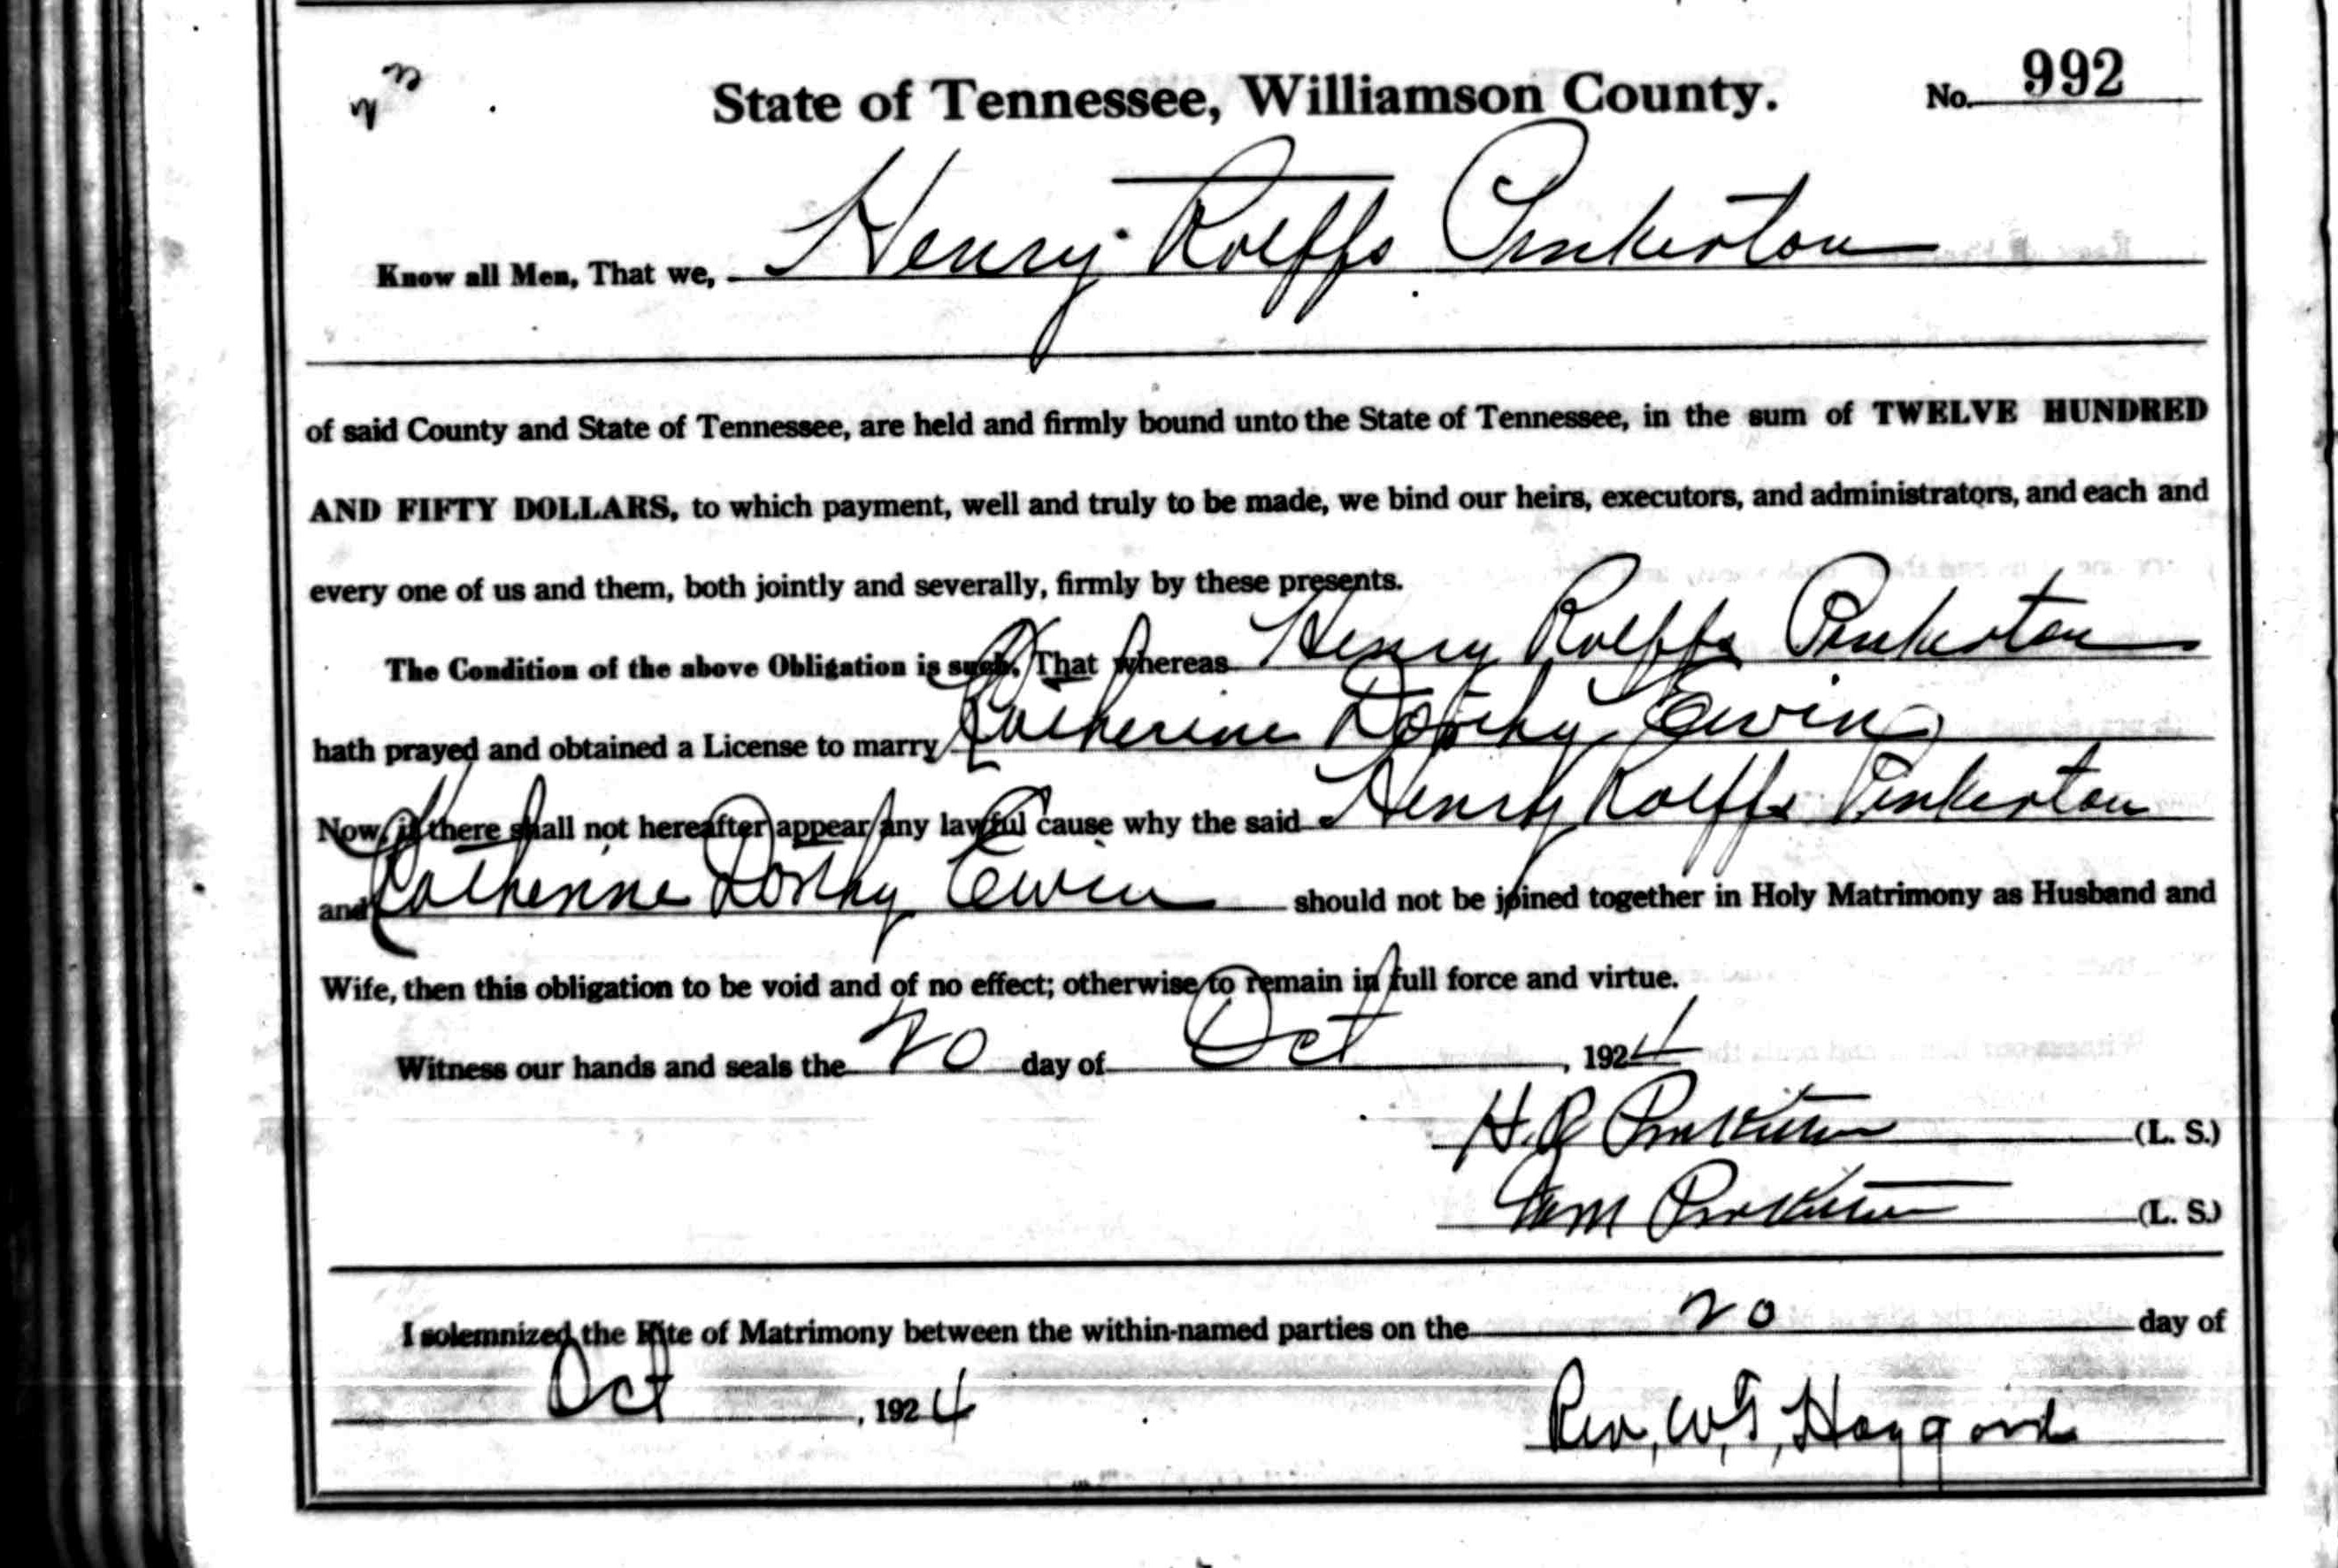 State of Tennessee, Williamson County. No. 992
Know all Men, That we, Henry Rolffs Pinkerton
of said County and State of Tennessee, are held and firmly bound unto the State of Tennessee, in the sum of TWELVE HUNDRED
AND FIFTY DOLLARS, to which payment, well and truly to be made, we bind our heirs, executors, and administrators, and each and
every one of us and them, both jointly and severally, firmly by these presents.
The Condition of the above Obligation is such, That whereas Henry Rolffs Pinkerton
hath prayed and obtained a License to marry Katherine Dorthy Ewin
Now, if there shall not hereafter appear any lawful cause why the said Henry Rolffs Pinkerton
and Katherine Dorthy Ewin should not be joined together in Holy Matrimony as Husband and
Wife, then this obligation to be void and of no effect; otherwise to remain in full force and virtue.
Witness our hands and seals the 20 day of Oct, 1924
H. R Pinkerton (L. S.)
Pinkerton (L. S.)
I solemnized the Rite of Matrimony between the within-named parties on the 20 day of
Oct, 1924 Rev, W, T, Haggard